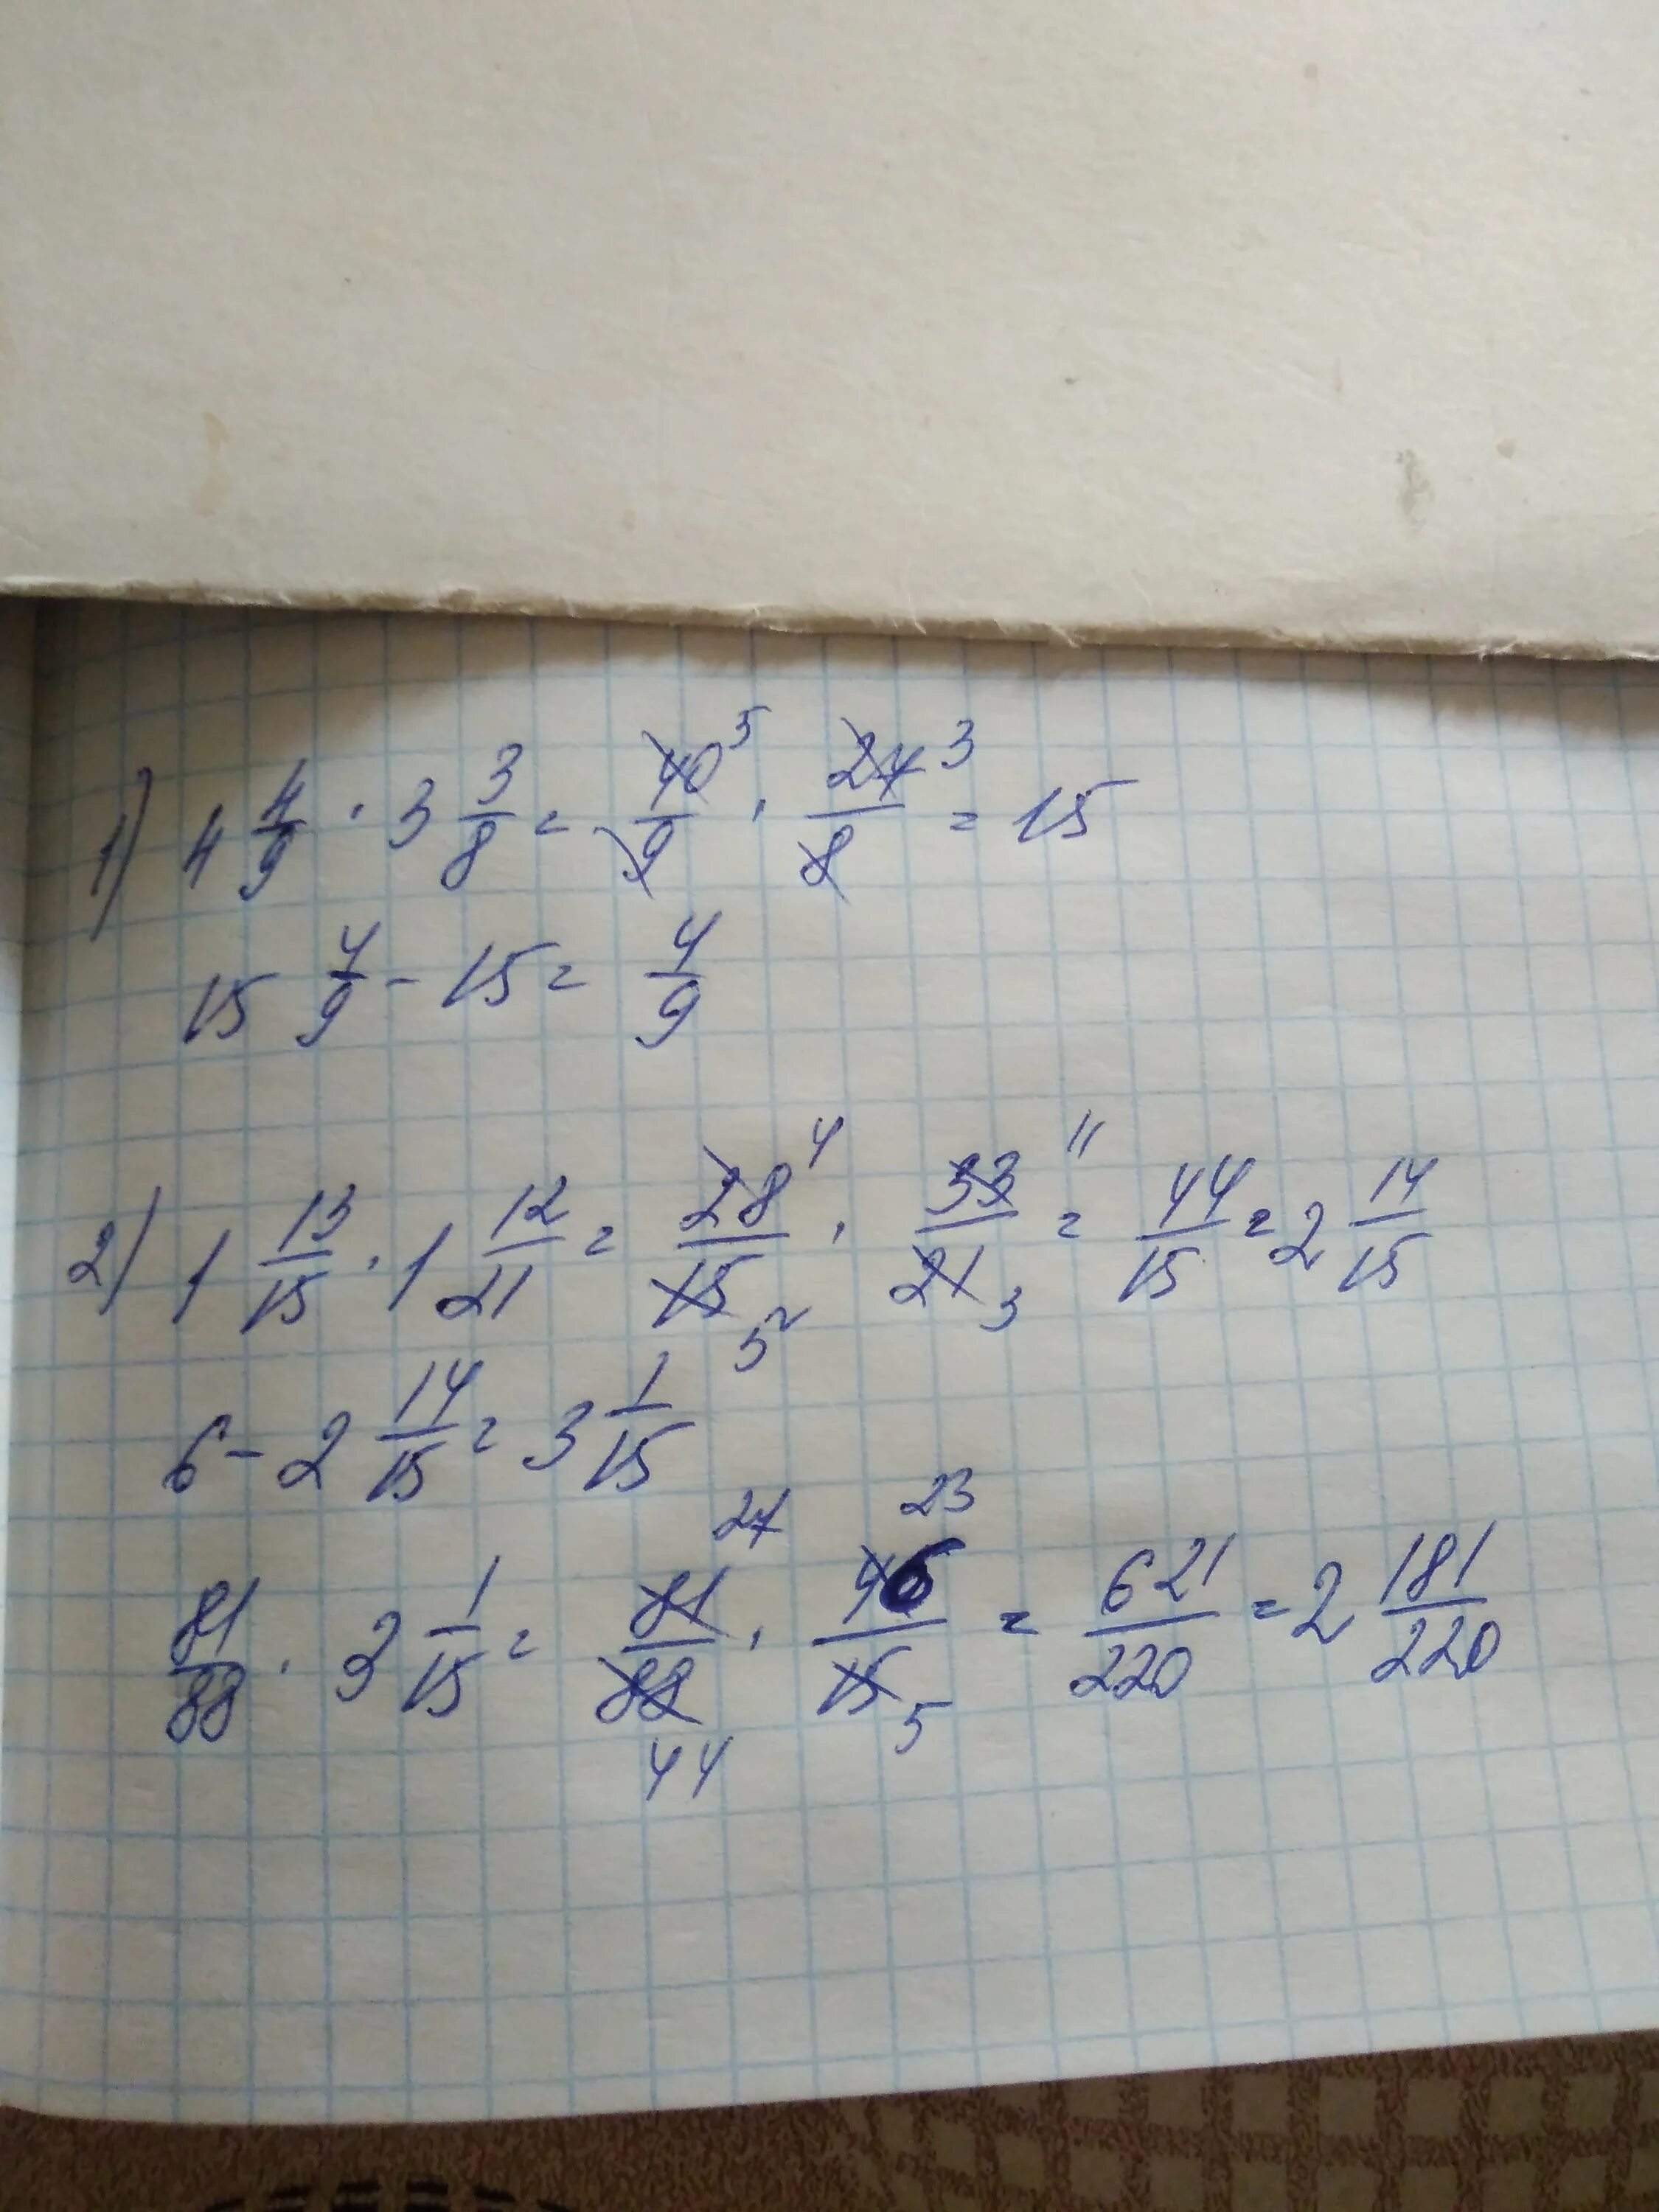 1) 4 4/9 · 3 3/8 = 40/9 5 · 24/8 3 = 15
15 4/9 - 15 = 4/9
2) 1 13/15 · 1 12/21 = 28/15 4 5 · 33/21 11 3 = 44/15 = 2 14/15
6 - 2 14/15 = 3 1/15
81/88 · 3 1/15 = 81/88 27 44 · 46/15 23 5 = 621/220 = 2 181/220